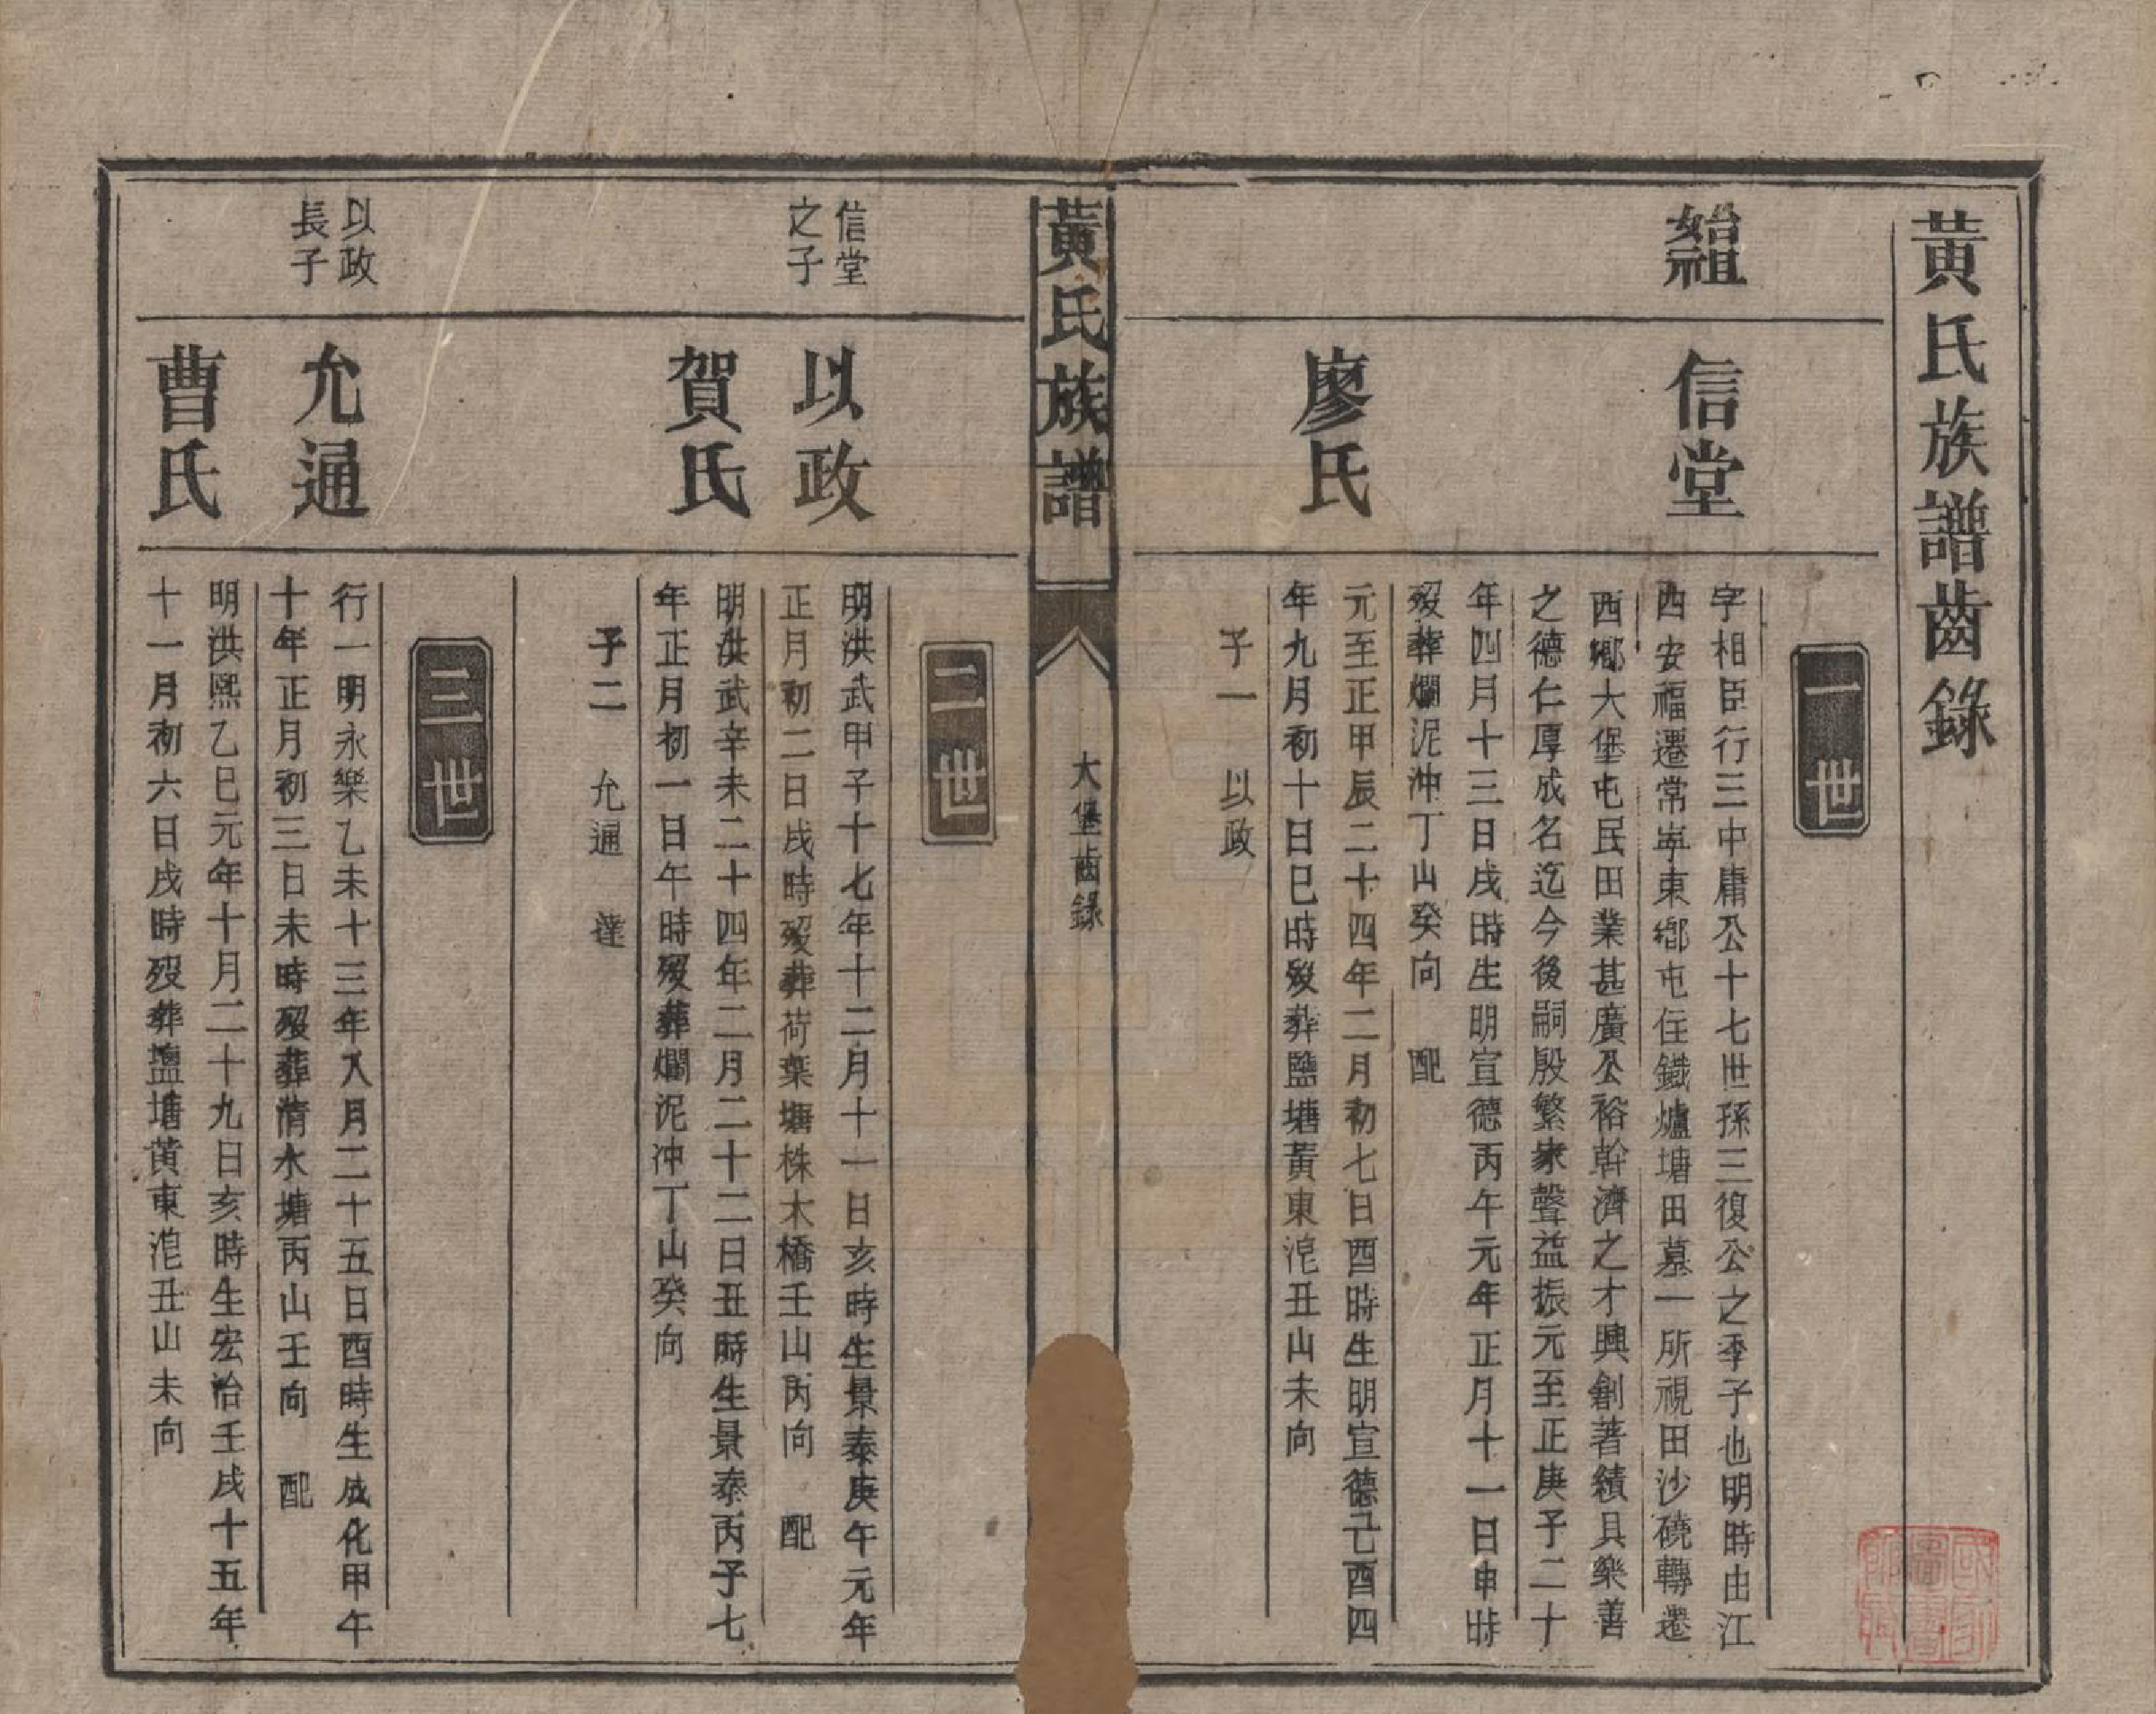 黃氏族譜齒錄
一世
始祖
信堂
字相臣行三中庸公十七世孫三復公之季子也明時由江
西安福遷常寧東鄉屯住鐵爐塘田墓一所視田沙磽轉遷
西鄉大堡屯民田業甚廣公裕幹濟之才興創著績具樂善
之德仁厚成名迄今後嗣殷繁家聲益振元至正庚子二十
年四月十三日戌時生明宣德丙午元年正月十一日申時
歿葬爛泥沖丁山癸向 配
廖氏
元至正甲辰二十四年二月初七日酉時生明宣德己酉四
年九月初十日巳時歿葬鹽塘黃東浘丑山未向
子一 以政
黃氏族譜
大堡齒錄
二世
信堂
之子
以政
明洪武甲子十七年十二月十一日亥時生景泰庚午元年
正月初二日戌時歿葬荷葉塘株木橋壬山丙向 配
賀氏
明洪武辛未二十四年二月二十二日丑時生景泰丙子七
年正月初一日午時歿葬爛泥沖丁山癸向
子二 允通 達
三世
以政
長子
允通
行一明永樂乙未十三年八月二十五日酉時生成化甲午
十年正月初三日未時歿葬清水塘丙山壬向 配
曹氏
明洪熙乙巳元年十月二十九日亥時生宏治壬戌十五年
十一月初六日戌時歿葬鹽塘黃東浘丑山未向